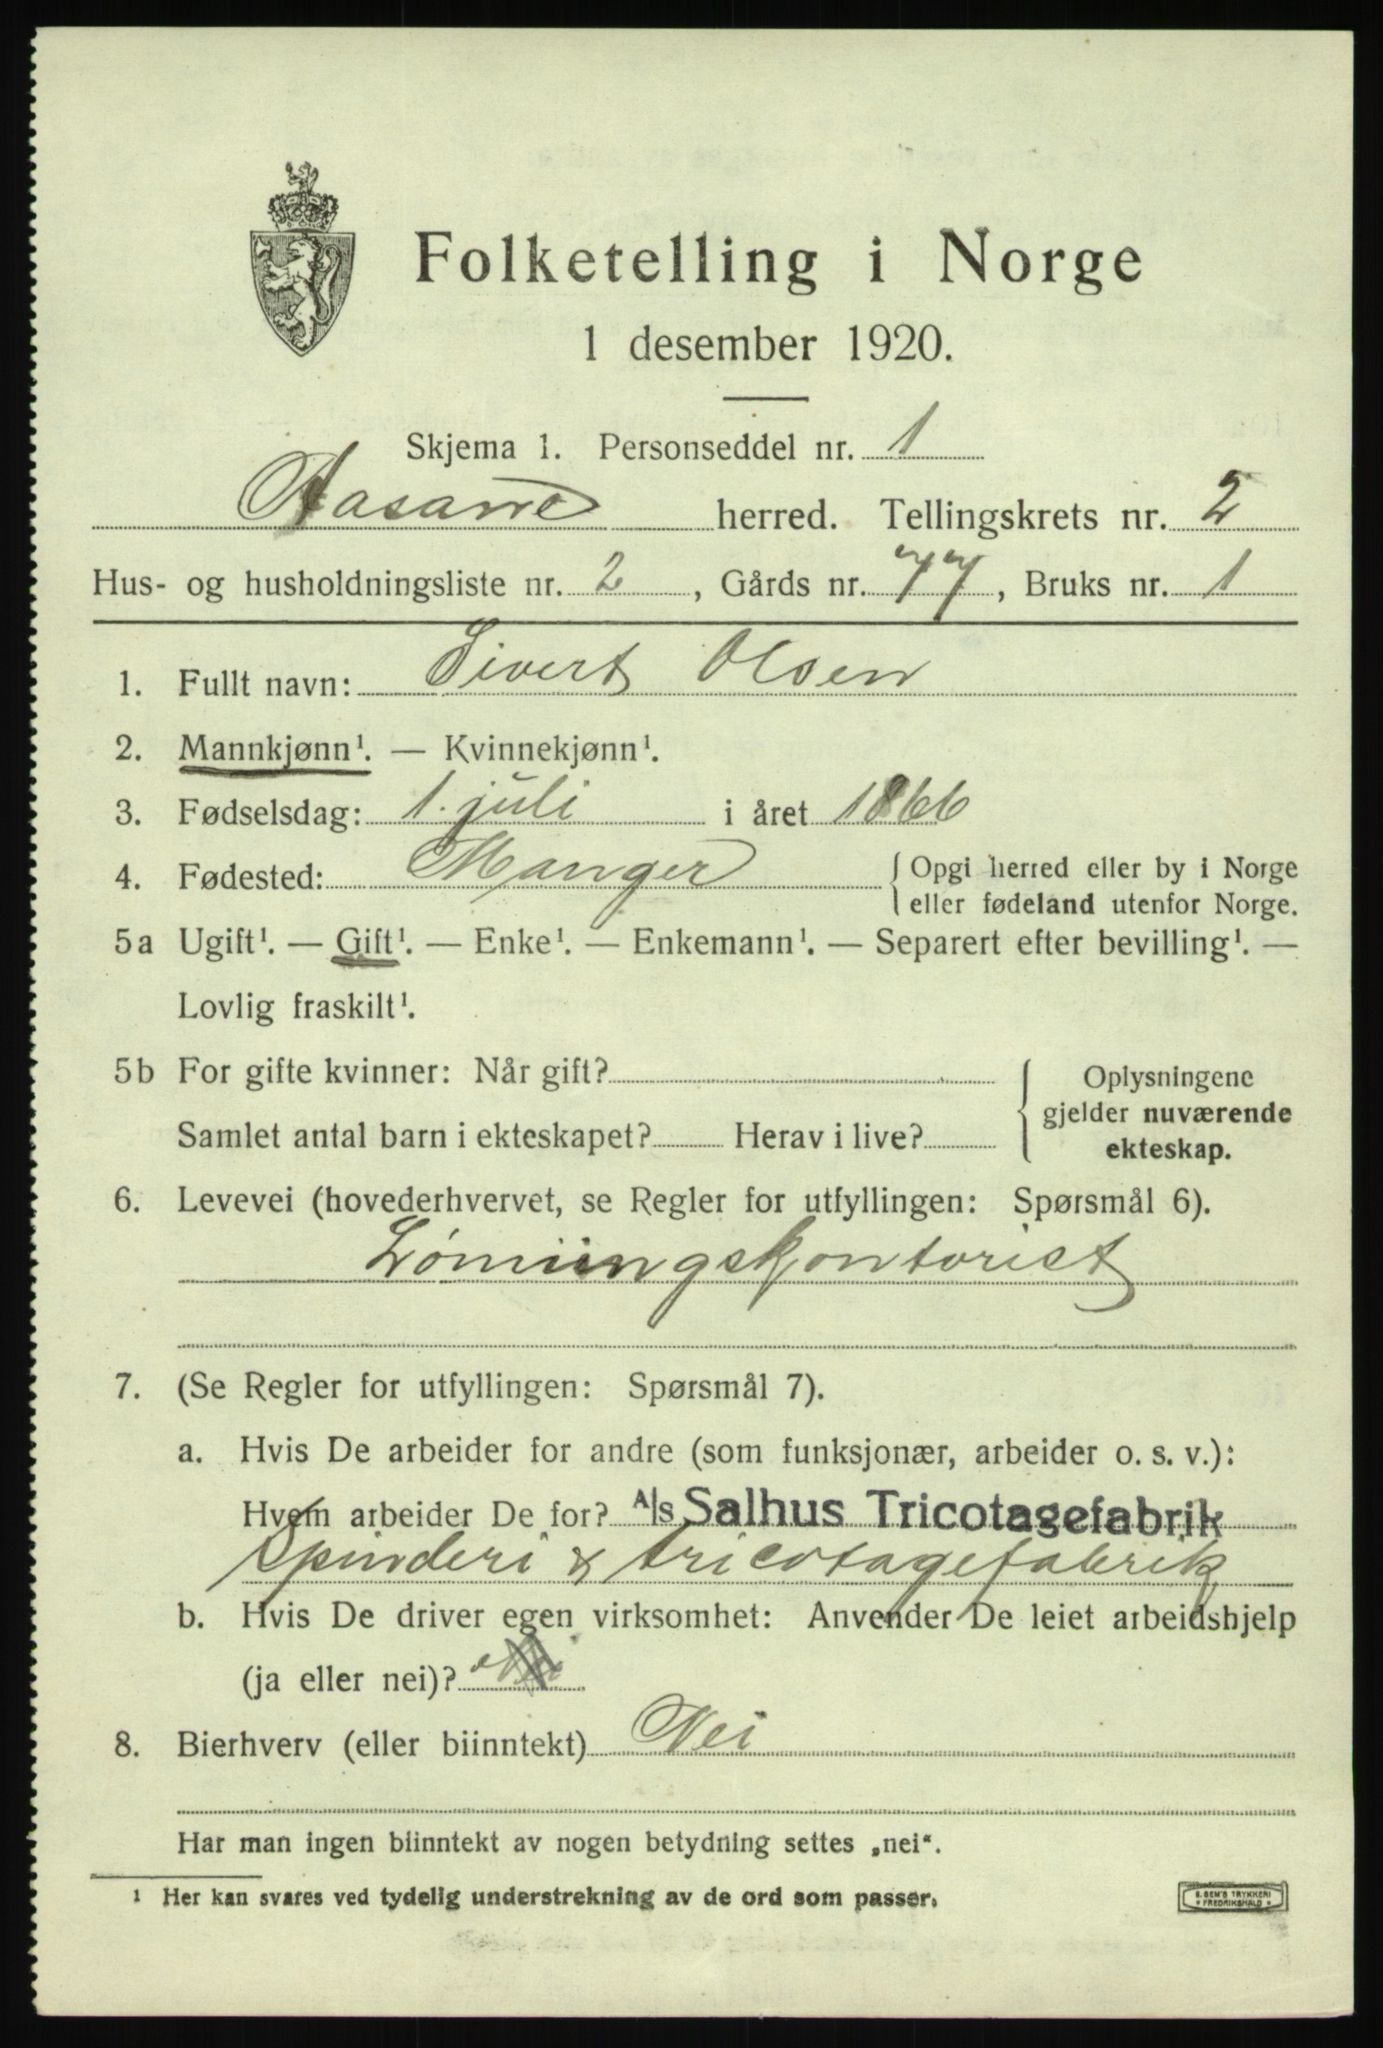 Folketelling i Norge
1 desember 1920.
Skjema 1. Personseddel nr. 1
Aasane herred. Tellingskrets nr. 2
Hus- og husholdningsliste nr. 2, Gårds nr. 77, Bruks nr. 1
1. Fullt navn: Sivert Olsen
2. Mannkjønn¹. — Kvinnekjønn¹.
3. Fødselsdag: 1. juli i året 1866
4. Fødested: Manger { Opgi herred eller by i Norge
eller fødeland utenfor Norge.
5a Ugift¹. — Gift¹. — Enke¹. — Enkemann¹. — Separert efter bevilling¹. —
Lovlig fraskilt¹.
5b For gifte kvinner: Når gift?
Samlet antal barn i ekteskapet? Herav i live?
{ Oplysningene
gjelder nuværende
ekteskap.
6. Levevei (hovederhvervet, se Regler for utfyllingen: Spørsmål 6).
Lønningskontorist
7. (Se Regler for utfyllingen: Spørsmål 7).
a. Hvis De arbeider for andre (som funksjonær, arbeider o. s. v.):
Hvem arbeider De for? A/s Salhus Tricotagefabrik
Spinderi & tricotagefabrik
b. Hvis De driver egen virksomhet: Anvender De leiet arbeidshjelp
(ja eller nei)? Nei
8. Bierhverv (eller biinntekt) Nei
Har man ingen biinntekt av nogen betydning settes „nei“.
¹ Her kan svares ved tydelig understrekning av de ord som passer.
E. SEM'S TRYKKERI
* FREDRIKSHALD *